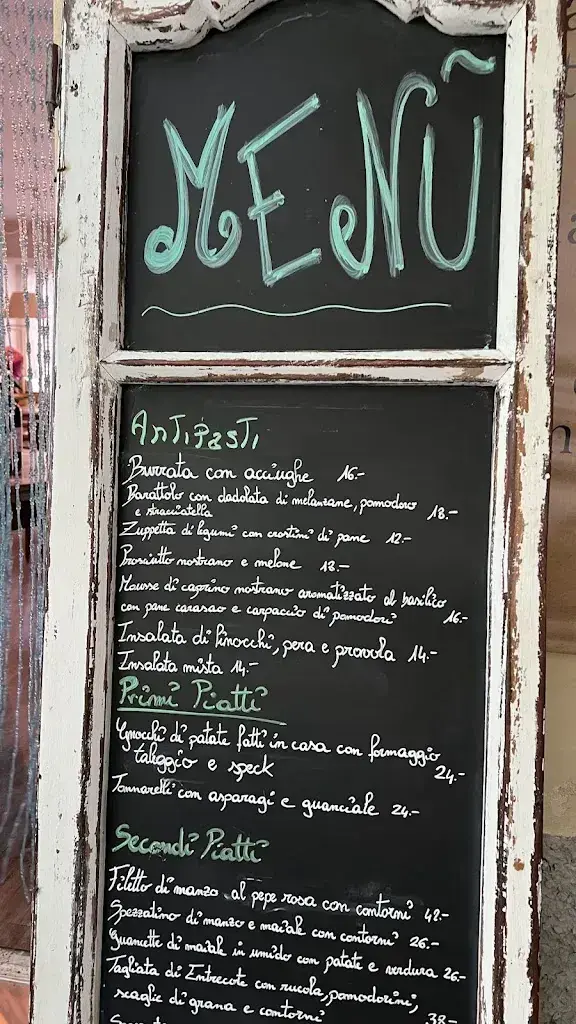 MENÙ
Antipasti
Burrata con acciughe 16.-
Barattolo con dadolata di melanzane, pomodoro
e stracciatella 18.-
Zuppetta di legumi con crostini di pane 12.-
Prosciutto nostrano e melone 18.-
Mousse di caprino nostrano aromatizzato al basilico
con pane carasao e carpaccio di pomodori 16.-
Insalata di finocchi, pera e provola 14.-
Insalata mista 14.-
Primi Piatti
Gnocchi di patate fatti in casa con formaggio
taleggio e speck 24.-
Tonnarelli con asparagi e guanciale 24.-
Secondi Piatti
Filetto di manzo al pepe rosa con contorni 42.-
Spezzatino di manzo e maiale con contorni 26.-
Guancette di maiale in umido con patate e verdura 26.-
Tagliata di Entrecote con rucola, pomodorini,
scaglie di grana e contorni 38.-